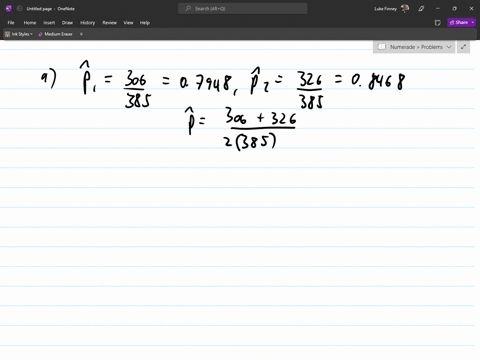 Untitled page - OneNote
Search
Luke Finney
File Home Insert Draw History Review View Help
Share
Ink Styles Medium Eraser
Numerade > Problems
a) p̂₁ = 306/385 = 0.7948, p̂₂ = 326/385 = 0.8468
p̂ = 306 + 326 / 2(385)